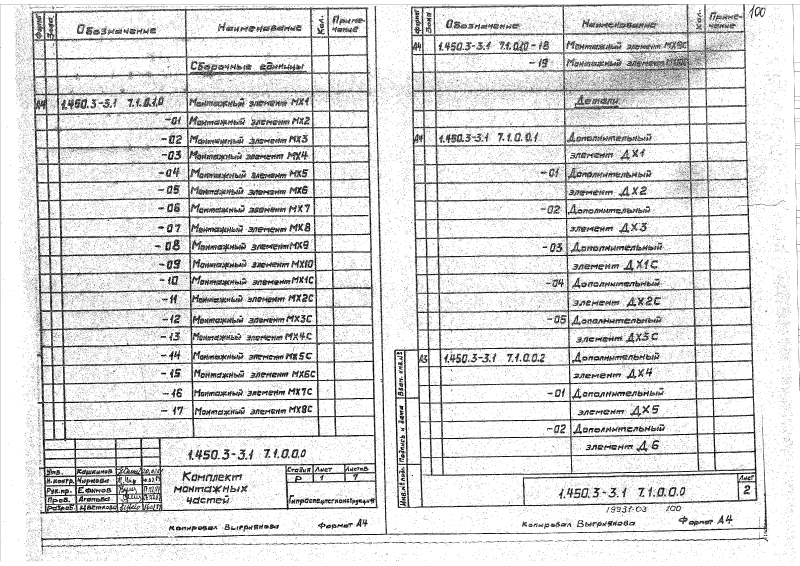 Формат Зона Обозначение Наименование Кол. Примечание
Сборочные единицы
А4 1.450.3-3.1 7.1.0.1.0 Монтажный элемент МХ1
-01 Монтажный элемент МХ2
-02 Монтажный элемент МХ3
-03 Монтажный элемент МХ4
-04 Монтажный элемент МХ5
-05 Монтажный элемент МХ6
-06 Монтажный элемент МХ7
-07 Монтажный элемент МХ8
-08 Монтажный элемент МХ9
-09 Монтажный элемент МХ10
-10 Монтажный элемент МХ1С
-11 Монтажный элемент МХ2С
-12 Монтажный элемент МХ3С
-13 Монтажный элемент МХ4С
-14 Монтажный элемент МХ5С
-15 Монтажный элемент МХ6С
-16 Монтажный элемент МХ7С
-17 Монтажный элемент МХ8С
1.450.3-3.1 7.1.0.0.0
Утв. Кашкинов
Н.контр. Чиркова
Рук.пр. Ефимов
Пров. Агапова
Разраб. Цветкова
Комплект
монтажных
частей
Стадия Лист Листов
Р 1 7
Гипроспецлегконструкция
Копировал Выгриянова Формат А4
100
Формат Зона Обозначение Наименование Кол. Примечание
А4 1.450.3-3.1 7.1.0.1.0-18 Монтажный элемент МХ9С
-19 Монтажный элемент
Детали
А4 1.450.3-3.1 7.1.0.0.1 Дополнительный
элемент ДХ1
-01 Дополнительный
элемент ДХ2
-02 Дополнительный
элемент ДХ3
-03 Дополнительный
элемент ДХ1С
-04 Дополнительный
элемент ДХ2С
-05 Дополнительный
элемент ДХ3С
А3 1.450.3-3.1 7.1.0.0.2 Дополнительный
элемент ДХ4
-01 Дополнительный
элемент ДХ5
-02 Дополнительный
элемент Д6
Инв.№подл. Подпись и дата Взам. инв.№
1.450.3-3.1 7.1.0.0.0
Лист
2
19931-03 100
Копировал Выгриянова Формат А4